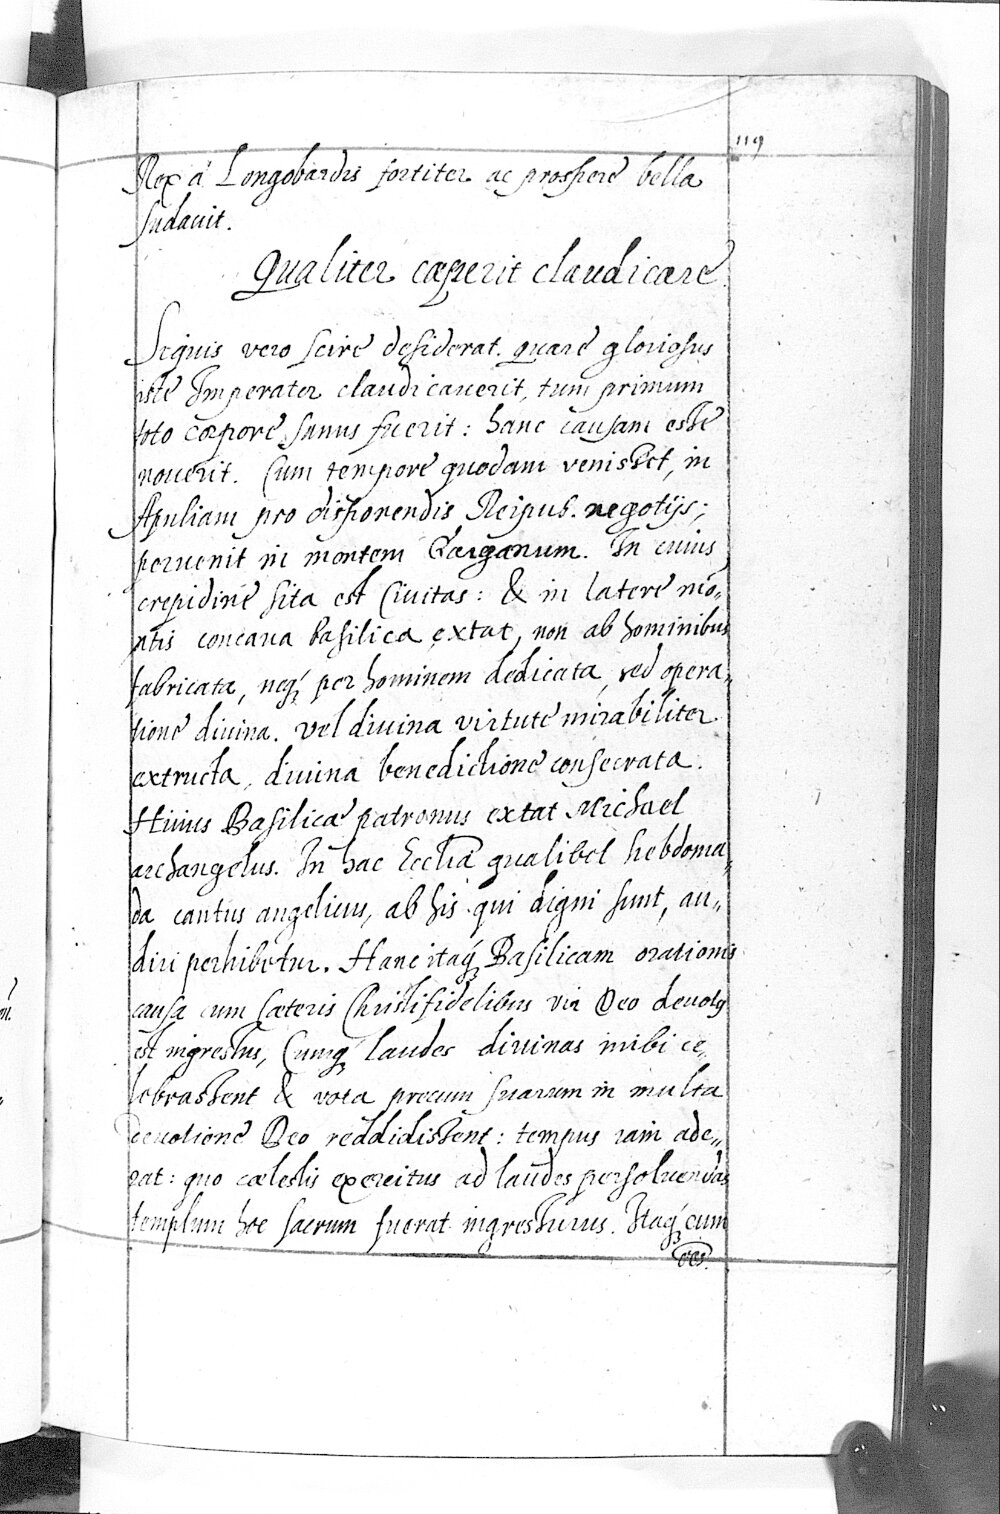 119
Rex á Longobardis fortiter ac prospere bella
sudauit.
Qualiter cæperit claudicare
Siquis vero scire desiderat. quare gloriosus
iste Imperator claudicauerit, tum primum
toto corpore sanus fuerit: hanc causam esse
nouerit. Cum tempore quodam venisset, in
Apuliam pro disponendis Reipub. negotijs;
peruenit in montem Garganum. In cuius
crepidine sita est Ciuitas: & in latere mō„
ntis concaua basilica extat, non ab hominibus
fabricata, neq́ꝫ per hominem dedicata, sed opera„
tione diuina. vel diuina virtute mirabiliter
extructa, diuina benedictione consecrata.
Huius Basilicæ patronus extat Michael
archangelus. In hac Ecclīa qualibet hebdoma„
da cantus angelicus, ab his qui digni sunt, au„
diri perhibetur. Hanc itaq́ꝫ Basilicam orationis
causa cum cæteris Christifidelibus vir Deo deuotꝰ
est ingressus, Cumq́ꝫ laudes diuinas inibi ce„
lebrassent & vota precum suarum in multa
deuotione Deo reddidissent: tempus iam ade„
rat: quo cælestis exercitus ad laudes persoluendas
templum hoc sacrum fuerat ingressurus. Itaq́ꝫ cum